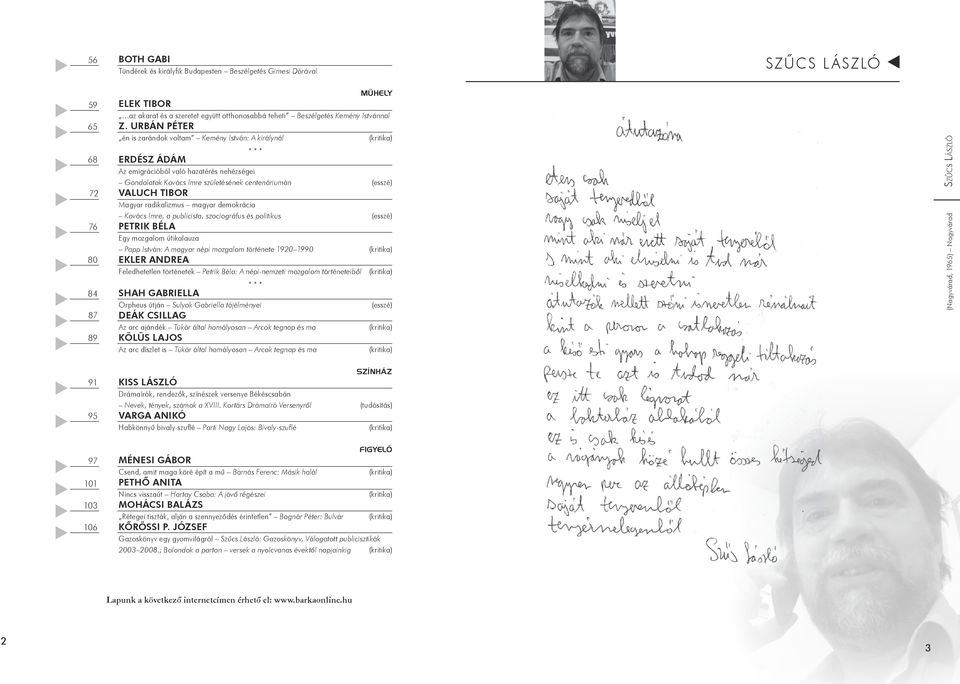 56 BOTH GABI
Tündérek és királyfik Budapesten – Beszélgetés Gimesi Dórával
MŰHELY
59 ELEK TIBOR
„…az akarat és a szeretet együtt otthonosabbá teheti” – Beszélgetés Kemény Istvánnal
65 Z. URBÁN PÉTER
„én is zarándok voltam” – Kemény István: A királynál (kritika)
* * *
68 ERDÉSZ ÁDÁM
Az emigrációból való hazatérés nehézségei
– Gondolatok Kovács Imre születésének centenáriumán (esszé)
72 VALUCH TIBOR
Magyar radikalizmus – magyar demokrácia
– Kovács Imre, a publicista, szociográfus és politikus (esszé)
76 PETRIK BÉLA
Egy mozgalom útikalauza
– Papp István: A magyar népi mozgalom története 1920–1990 (kritika)
80 EKLER ANDREA
Feledhetetlen történetek – Petrik Béla: A népi-nemzeti mozgalom történeteiből (kritika)
* * *
84 SHAH GABRIELLA
Orpheus útján – Sulyok Gabriella tájélményei (esszé)
87 DEÁK CSILLAG
Az arc ajándék – Tükör által homályosan – Arcok tegnap és ma (kritika)
89 KÖLÜS LAJOS
Az arc díszlet is – Tükör által homályosan – Arcok tegnap és ma (kritika)
SZÍNHÁZ
91 KISS LÁSZLÓ
Drámaírók, rendezők, színészek versenye Békéscsabán
– Nevek, tények, számok a XVIII. Kortárs Drámaíró Versenyről (tudósítás)
95 VARGA ANIKÓ
Habkönnyű bivaly-szuflé – Parti Nagy Lajos: Bivaly-szuflé (kritika)
FIGYELŐ
97 MÉNESI GÁBOR
Csend, amit maga köré épít a mű – Barnás Ferenc: Másik halál (kritika)
101 PETHŐ ANITA
Nincs visszaút – Hartay Csaba: A jövő régészei (kritika)
103 MOHÁCSI BALÁZS
„Rétegei tiszták, alján a szennyeződés érintetlen” – Bognár Péter: Bulvár (kritika)
106 KŐRÖSSI P. JÓZSEF
Gazoskönyv egy gyomvilágról – Szűcs László: Gazoskönyv, Válogatott publicisztikák
2003–2008.; Bolondok a parton – versek a nyolcvanas évektől napjainkig (kritika)
Lapunk a következő internetcímen érhető el: www.barkaonline.hu
2
SZŰCS LÁSZLÓ
átutazóra
csak
saját tenyeredből
vagy csak viselj el
mint aki már evett saját tenyeréből
s mint aki elviselni is tud már
viselkedni is szeretni
átutazók mellett széni ismeretlen rémálmait
kint a peronon a csatlakozás
a késő esti gyors a holnap reggeli tiltakozás
persze te ezt is tudod már
ez itt csak légvonat
a bakterház ablakából
ez is csak késő
a vágányok közé hullt összes kétséged
negyven perc az állóképben
saját tenyeremből
tenyérnelegemből
Szűcs László
SZŰCS LÁSZLÓ
(Nagyvárad, 1965) – Nagyvárad
3